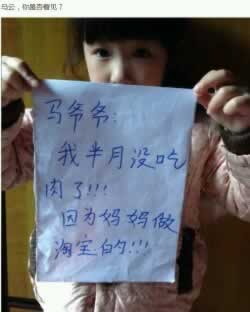 马云，你是否看见？
马爷爷：
我半月没吃
肉了！！！
因为妈妈做
淘宝的！！！